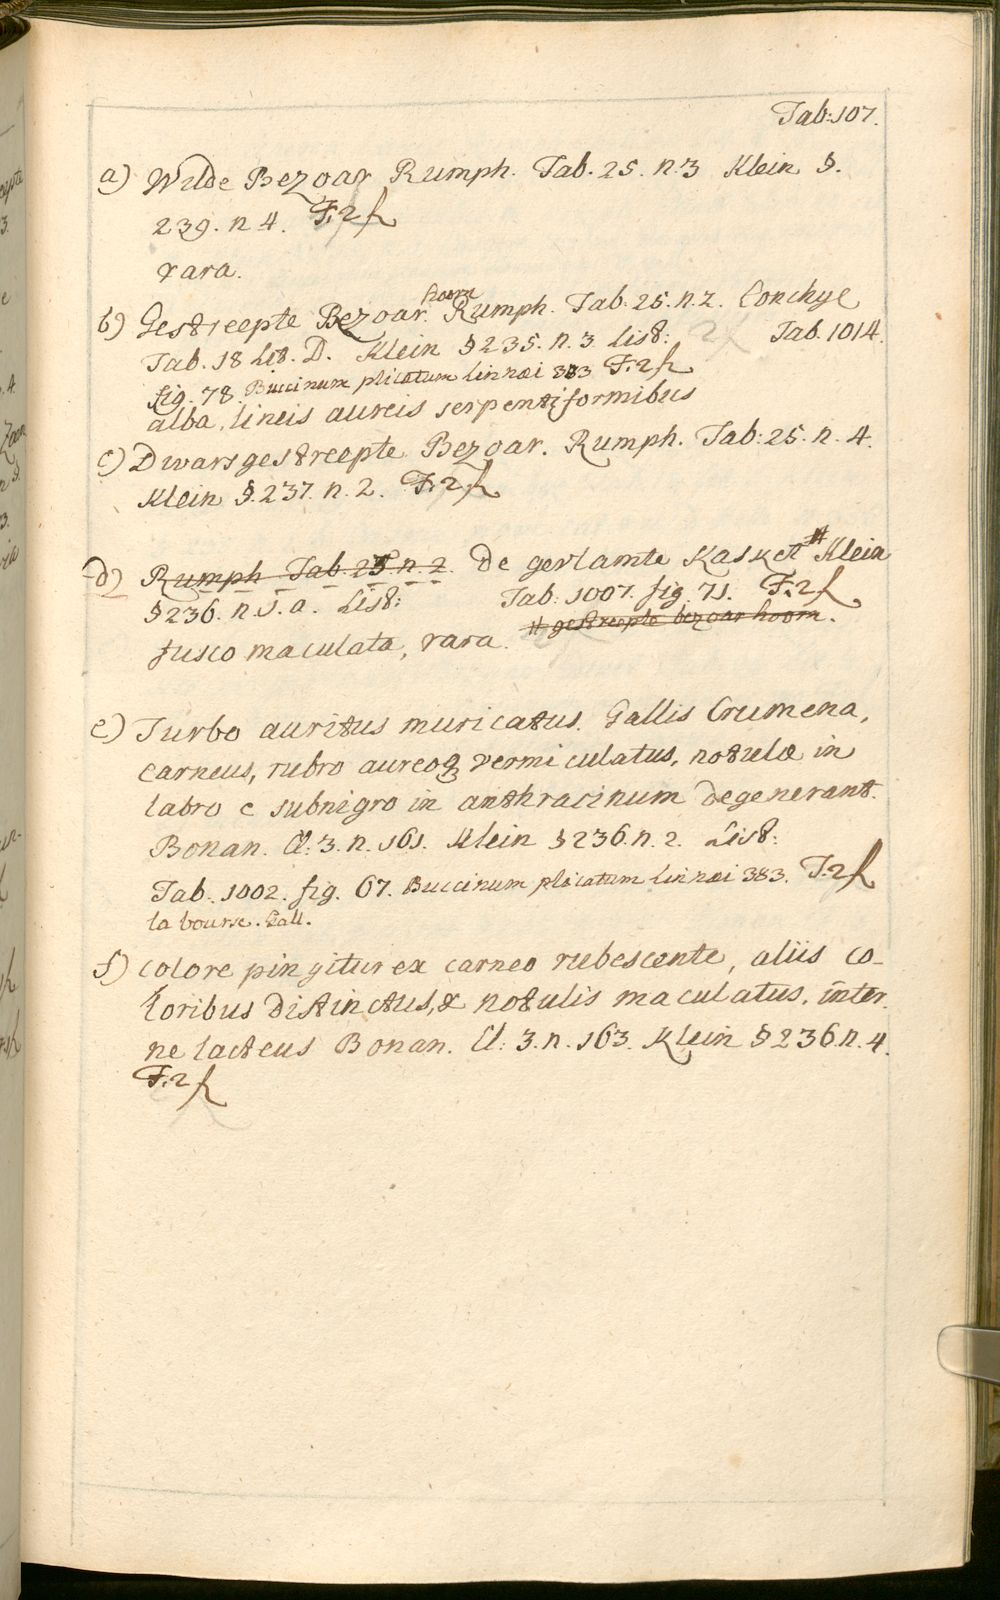 Tab: 107.
a) Wilde Bezoar Rumph. Tab. 25. n. 3 Klein §.
239. n 4. F. 2 f
rara.
hoorn
b) Gestreepte Bezoar. Rumph. Tab: 25. n. 2. Conchyl
Tab. 18 Lit. D. Klein § 235. n. 3. List: Tab. 1014.
fig. 78. Buccinum plicatum linnæi 383 F. 2 f
alba, lineis aureis serpentiformibus
c) Dwarsgestreepte Bezoar. Rumph. Tab: 25. n. 4.
Klein §. 237. n. 2. F. 2. f
d) Rumph Tab. 25 n. 2. De gevlamte Kasket # Klein
§ 236. n. 5. a. List: Tab: 1007. fig. 71. F. 2 f
# gestreepte bezoar hoorn.
fusco maculata, rara.
e) Turbo auritus muricatus. Gallis Crumena,
carneus, rubro aureoq vermiculatus, notulæ in
labro e subnigro in anthracinum degenerant.
Bonan. Cl. 3. n. 161. Klein § 236. n. 2. List:
Tab. 1002. fig. 67. Buccinum plicatum linnæi 383. F. 2 f
la bourse. Gall.
f) colore pingitur ex carneo rubescente, aliis co-
loribus distinctus, & notulis maculatus. inter.
ne lacteus Bonan. Cl: 3. n. 163. Klein § 236. n. 4.
F. 2 f